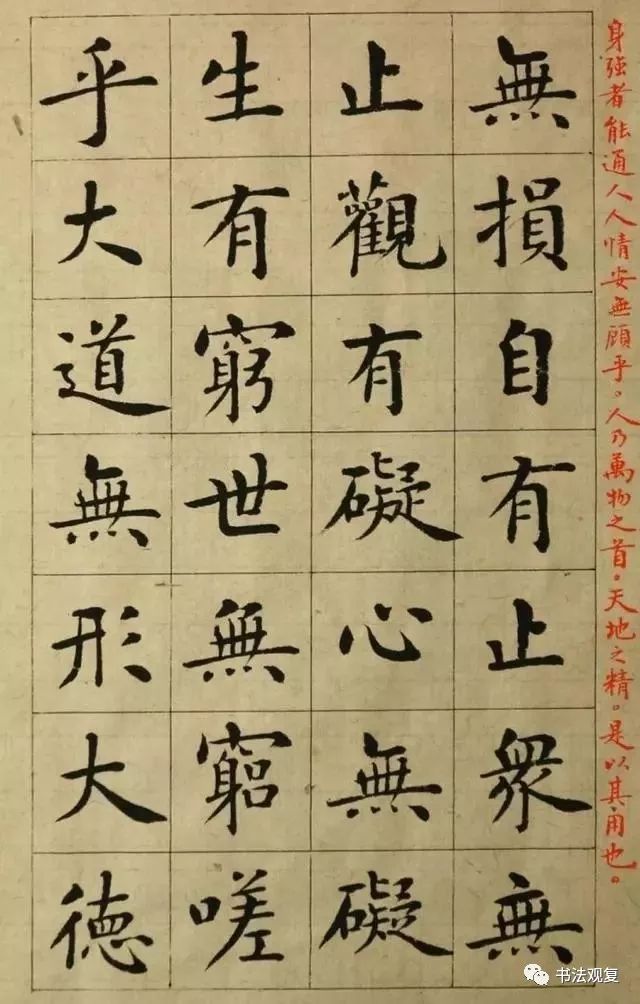 身強者能通人人情安無顧乎。人乃萬物之首。天地之精。是以其用也。
無損自有止眾無
止觀有礙心無礙
生有窮世無窮嗟
乎大道無形大德
书法观复